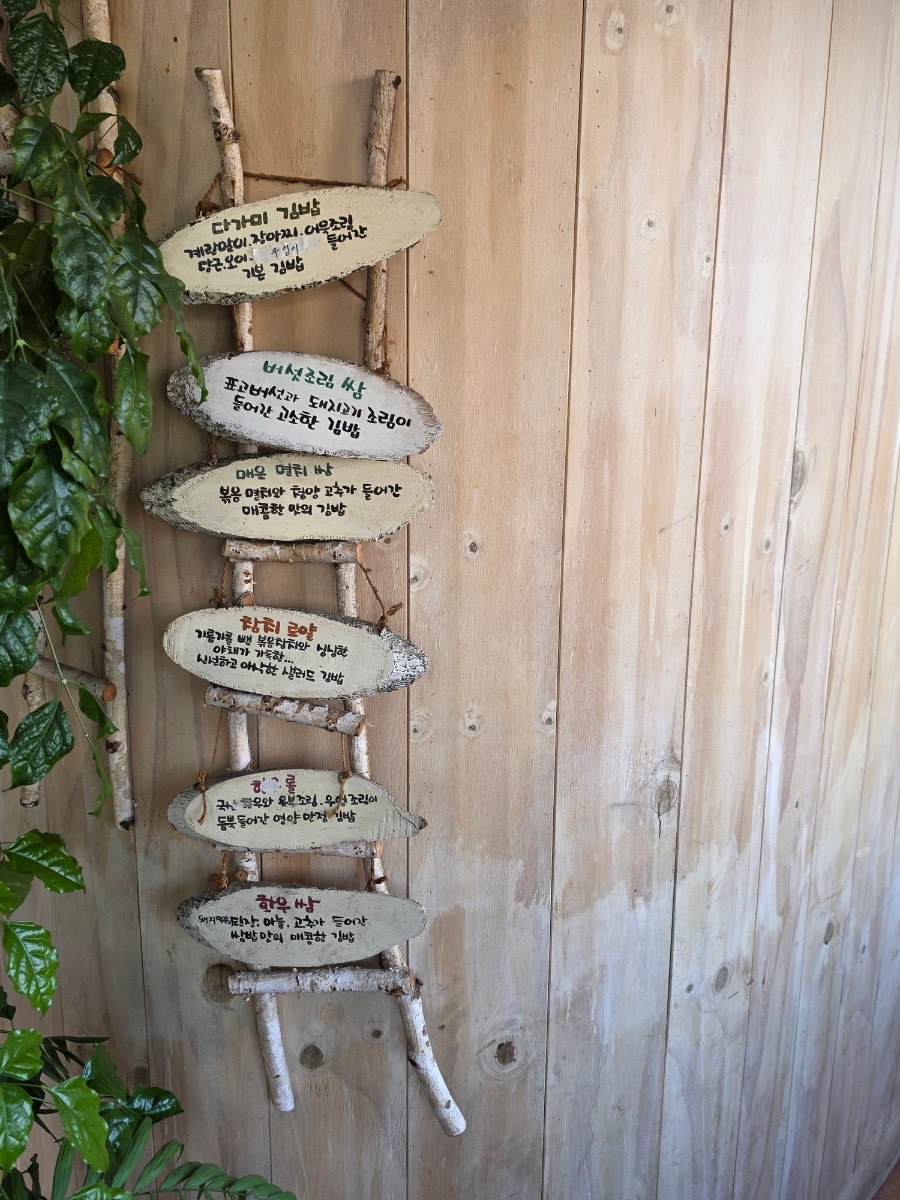 다가미 김밥
계란말이.장아찌.어묵조림
당근.오이. 우엉이 들어간
기본 김밥
버섯조림 쌈
표고버섯과 돼지고기 조림이
들어간 고소한 김밥
매운 멸치 쌈
볶음 멸치와 청양 고추가 들어간
매콤한 맛의 김밥
참치 로얄
기름기를 뺀 볶음참치와 싱싱한
야채가 가득한...
신선하고 아삭한 샐러드 김밥
롤
유부조림.우엉조림이
듬뿍 들어간 영양 만점 김밥
한우 쌈
된장.마늘.고추가 들어간
쌈밥 맛의 매콤한 김밥